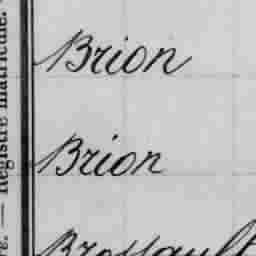 Brion
Brion
Brossault
Registre matricule.